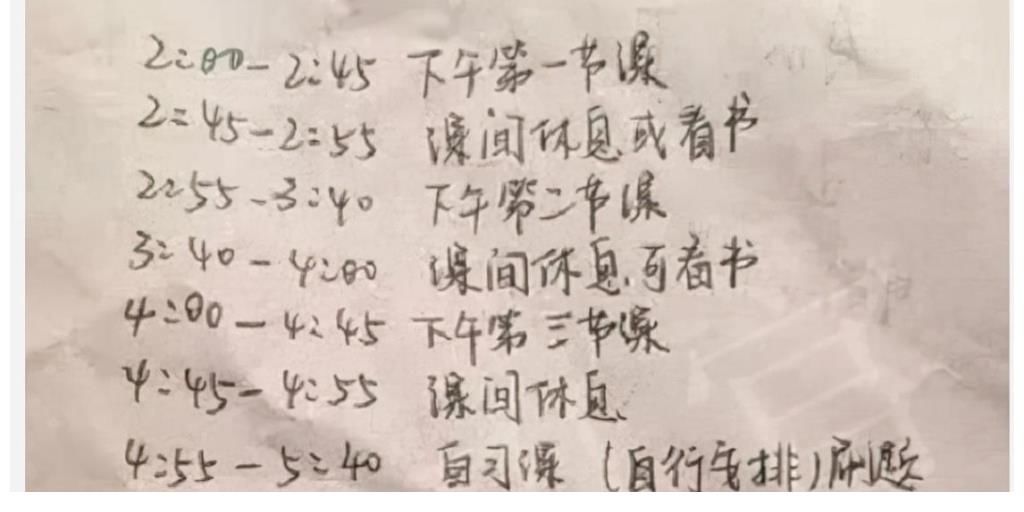 2:00-2:45 下午第一节课
2:45-2:55 课间休息或看书
2:55-3:40 下午第二节课
3:40-4:00 课间休息,可看书
4:00-4:45 下午第三节课
4:45-4:55 课间休息、
4:55-5:40 自习课(自行安排)刷题